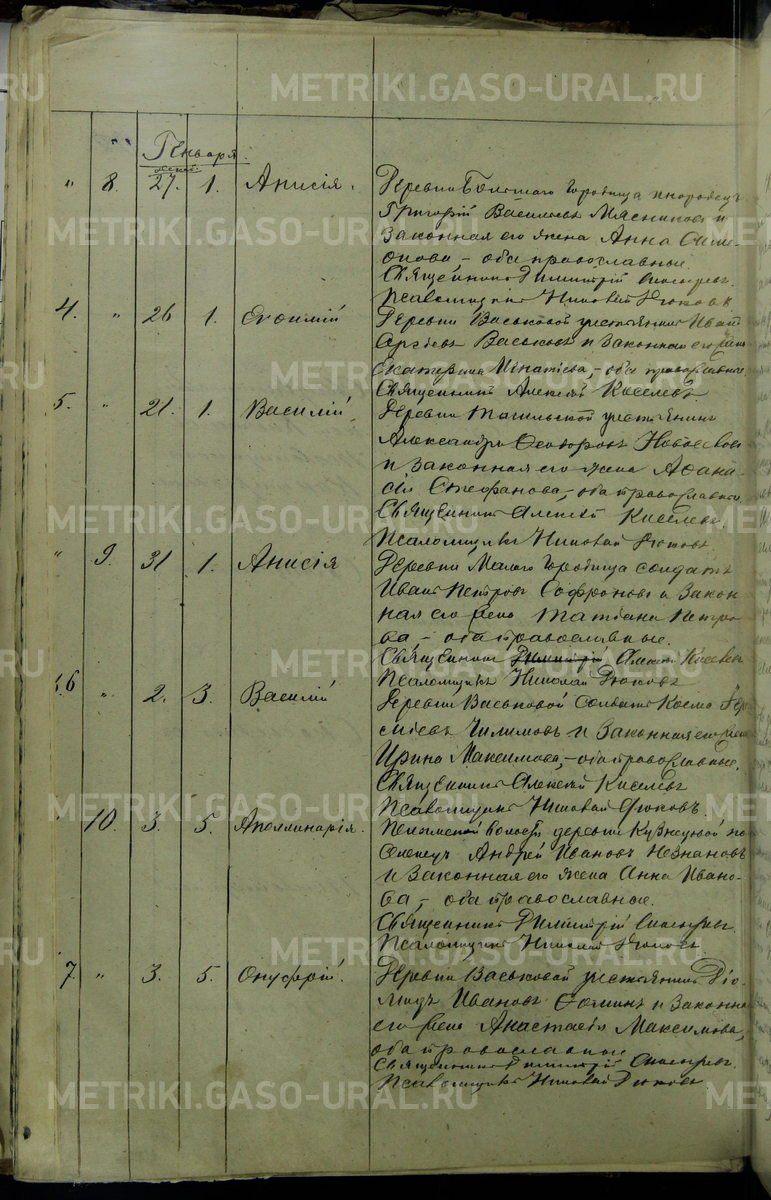 METRIKI.GASO-URAL.RU
Генваря.
„ 8. 27. 1. Анисія.
Деревни Большаго Городища инородецъ
Григорій Васильевъ Мясниковъ и
законная его жена Анна Симе-
онова – оба православные.
Священникъ Димитрій
Псаломщикъ Николай Дюковъ
4. „ 26 1. Евѳимій
Деревни Васьковой крестьянинъ Иванъ
Васьковъ и законная его жена
Екатерина Игнатіева, – оба православные
Священникъ Алексѣй Киселевъ
5. „ 21. 1. Василій
Деревни Тагильской крестьянинъ
Александръ Ѳеодоровъ
и законная его жена Аѳана-
сія Стефанова, – оба православные
Священникъ Алексѣй Киселевъ
Псаломщикъ Николай Дюковъ
„ 9. 31 1. Анисія
Деревни Малаго Городища солдатъ
Иванъ Петровъ Софроновъ и закон-
ная его жена Татіана Петро-
ва – оба православные.
Священникъ Димитрій Алексѣй Киселевъ
Псаломщикъ Николай Дюковъ
6 „ 2. 3. Василій
Деревни Васьковой солдатъ Косма
Чилимовъ и законная его жена
Ирина Максимова, – оба православные.
Священникъ Алексѣй Киселевъ
Псаломщикъ Николай Дюковъ.
10. 3. 5. Аполлинарія.
волости деревни Кузнецовой
Андрей Ивановъ Незнановъ
и законная его жена Анна Ивано-
ва, – оба православные.
Священникъ Димитрій
Псаломщикъ Николай Дюковъ.
7 „ 3. 5. Онуфрій.
Деревни Васьковой крестьянинъ Діо-
мидъ Ивановъ Ѳоминъ и законная
его жена Анастасія Максимова,
оба православные
Священникъ Димитрій
Псаломщикъ Николай Дюковъ